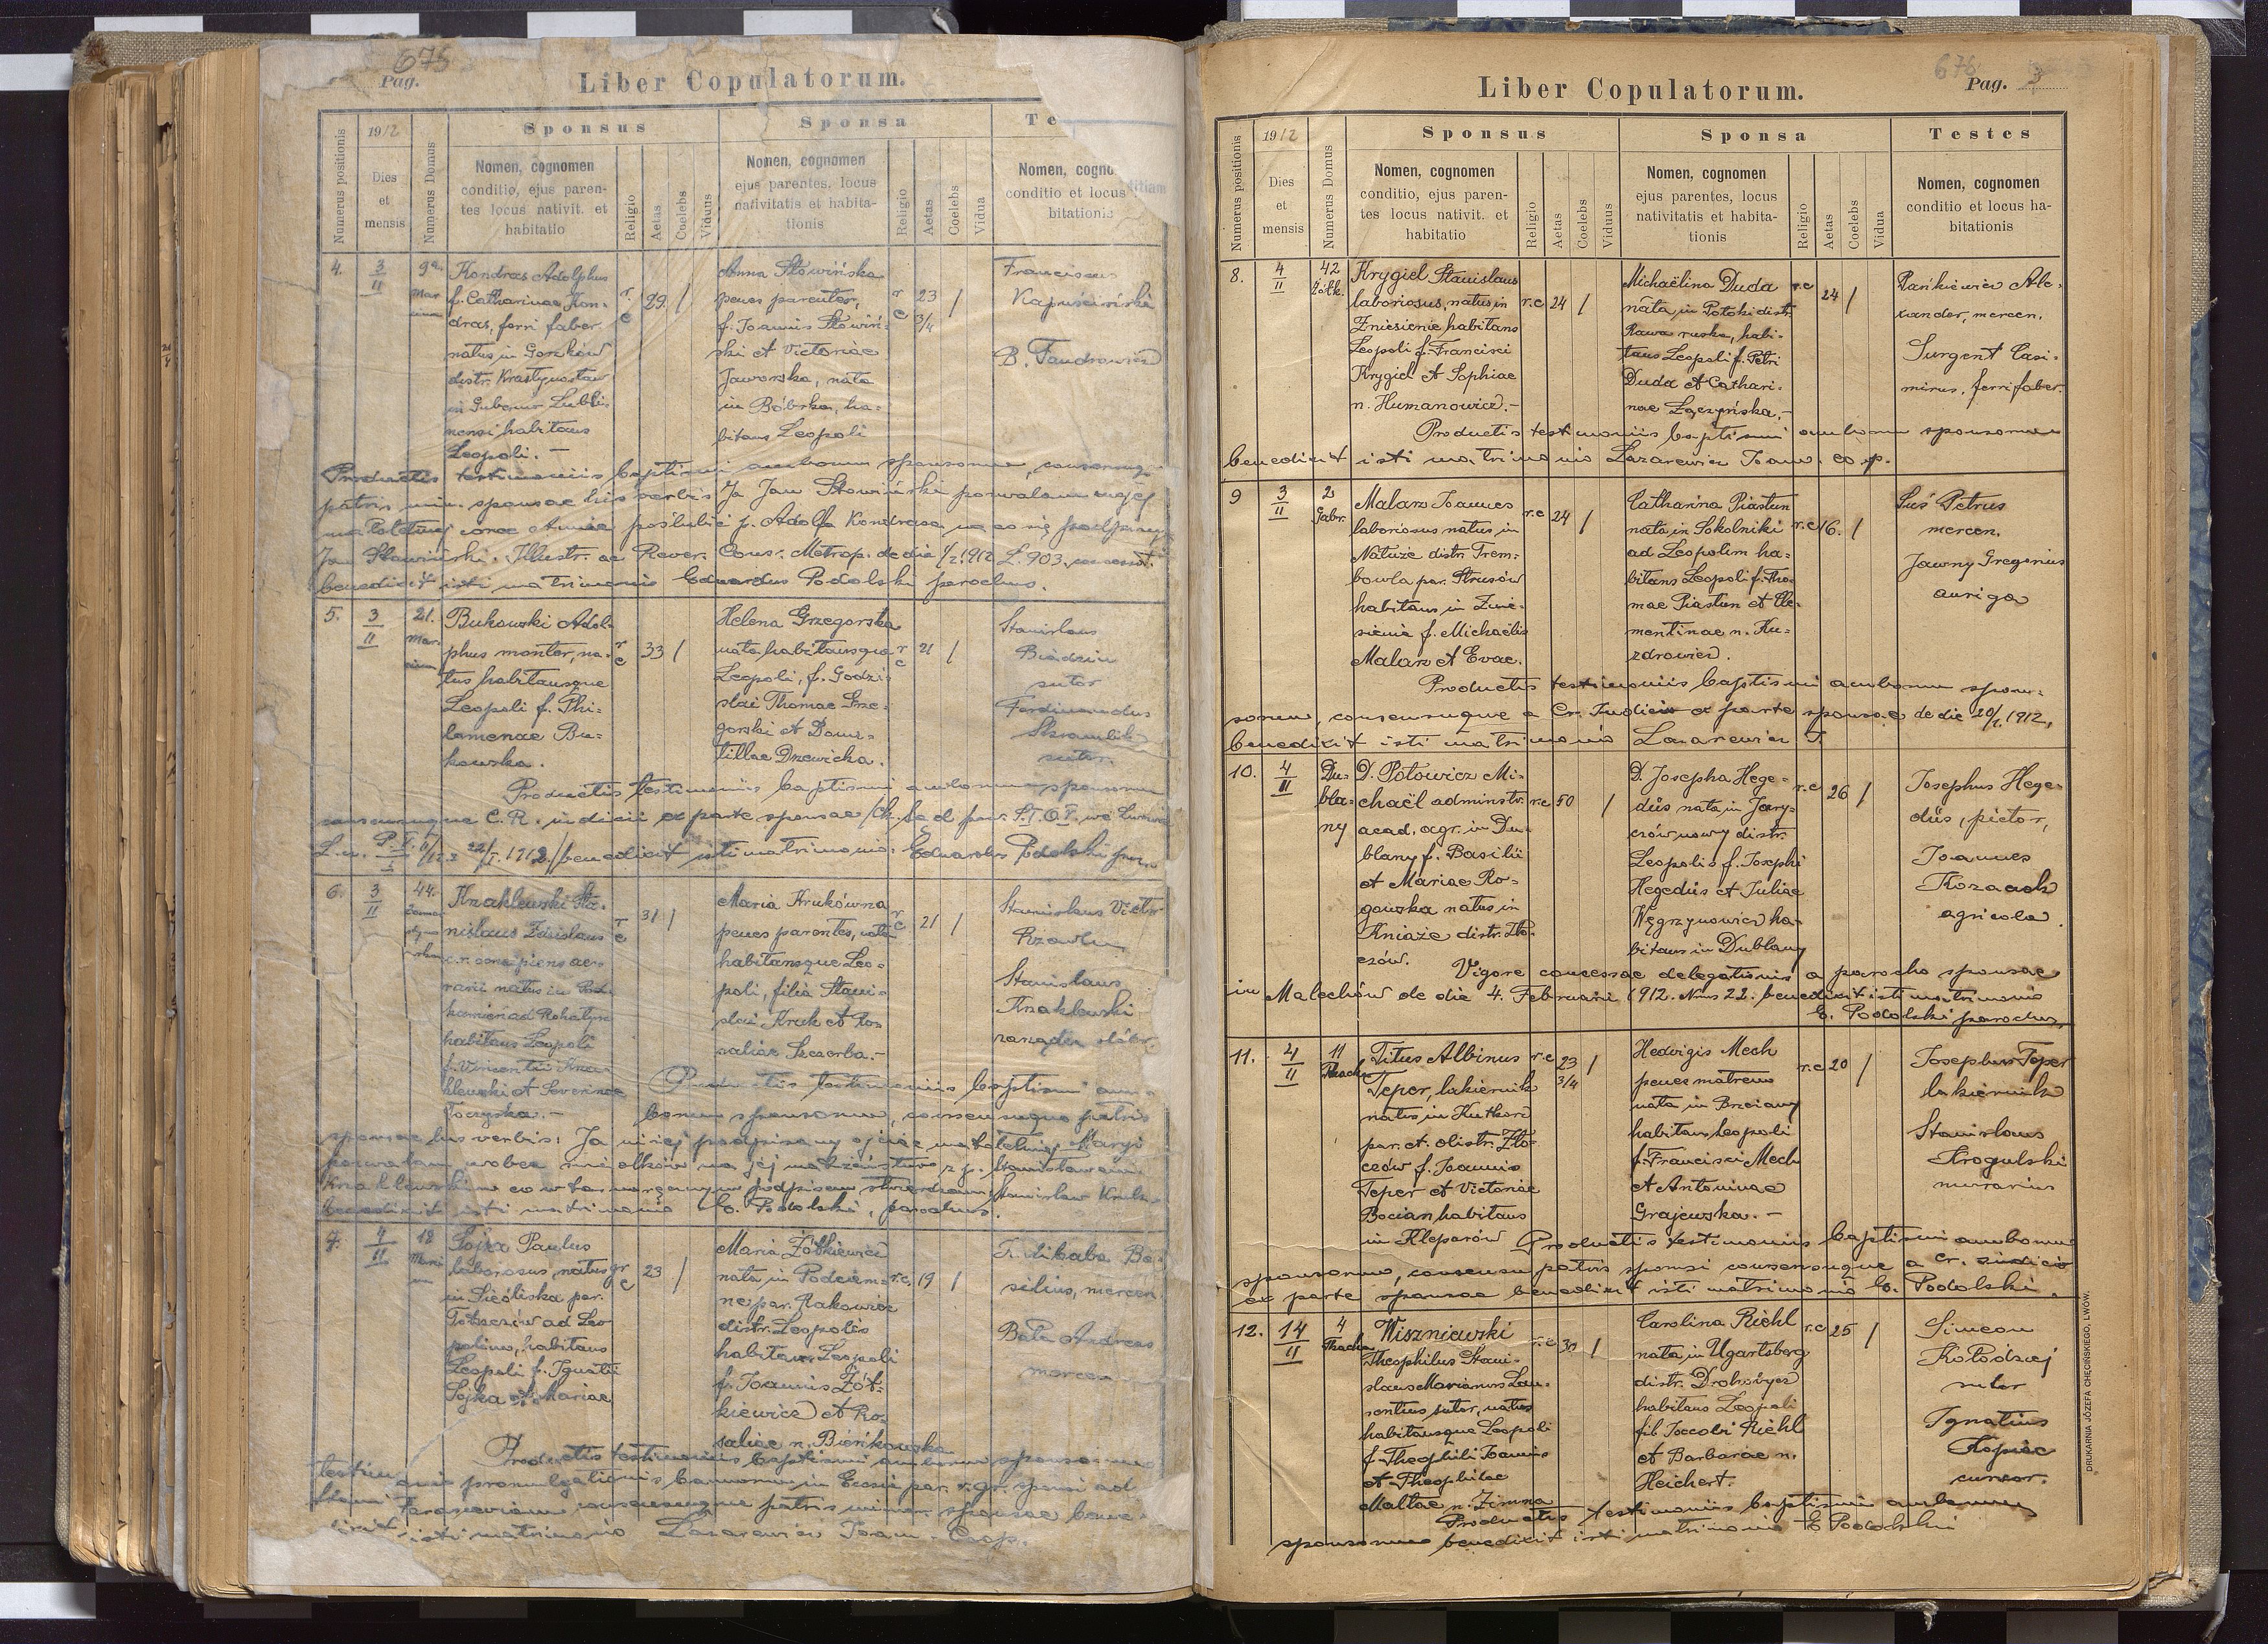 675
Pag.
Liber Copulatorum.
Numerus positionis
1912
Dies
et
mensis
Numerus Domus
Sponsus
Nomen, cognomen
conditio, ejus paren-
tes locus nativit. et
habitatio
Religio
Aetas
Coelebs
Viduus
Sponsa
Nomen, cognomen
ejus parentes, locus
nativitatis et habita-
tionis
Religio
Aetas
Coelebs
Vidua
Te
Nomen, cogno
conditio et locus
bitationis
4.
3
II
9a.
Kondras Adolphus
f. Catharinae Kon-
dras, ferri faber
natus in Gorzków
distr. Krastynostaw
in Gubern. Lubli-
nensi habitans
Leopoli. -
r. c
29. /
Anna Słowińska
penes parentes,
f. Joannis Słowiń-
ski et Victoriae
Jaworska, nata
in Bóbrka, ha-
bitans Leopoli
r c
23 3/4 /
Franciscus
Kapuściński
B.
Productis testimoniis baptismi amborum sponsorum, consensuque
patris min. sponsae his verbis Ja Jan Słowiński pozwalam mojej
małoletniej córce Annie poślubić p. Adolfa Kondrasa na co się podpisuję
Jan Słowiński. Illustr. ac Rever. Cons. Metrop. de die 1/2 1912 L. 903.
benedixit isti matrimonio Eduardus Podolski parochus.
5.
3
II
21.
Mar-
Bukowski Adol-
phus monter, na-
tus habitansque
Leopoli f. Phi-
lomenae Bu-
kowska.
r c
33 /
Helena Grzegorska
nata habitansque
Leopoli, f. Godzi-
slai Thomae Grze-
gorski et Domi-
tillae Drzewicka.
r c
21 /
Stanislaus
sutor
Ferdinandus
sutor
Productis testimoniis baptismi amborum sponsorum
consensuque C. R. iudicii ex parte sponsae
benedixit isti matrimonio. Eduardus Podolski par.
6.
3
II
44.
Knaklewski Sta-
nislaus Zdzislaus
c. r. concipiens ae-
rarii natus in Pod-
kamień ad Rohatyn
habitans Leopoli
f. Vincentii Kna-
klewski et Severinae
Toczyska. -
r c
31 /
Maria Krukówna
penes parentes, nata
habitansque Leo-
poli, filia Stani-
slai Kruk et Ro-
saliae Szczerba. -
r c
21 /
Stanislaus Victor
Stanislaus
Knaklewski
zarządca dóbr.
Productis testimoniis baptismi am-
borum sponsorum, consensuque patris
sponsae his verbis: Ja niżej podpisany ojciec małoletniej Maryi
pozwalam wobec świadków na jej małżeństwo z p. Stanisławem
Knaklewskim co własnoręcznym podpisem stwierdzam: Stanisław Kruk
benedixit isti matrimonio E. Podolski, parochus.
7.
4
II
18
Sojka Paulus
laboriosus, natus
in Siedliska par.
Tołszczów ad Leo-
polim, habitans
Leopoli f. Ignatii
Sojka et Mariae
gr c
23 /
Maria Żółkiewicz
nata in Podciem-
ne par. Rakowiec
distr. Leopolis
habitans Leopoli
f. Joannis Żół-
kiewicz et Ro-
saliae n. Bieńkowska
r. c.
19 /
Ba-
silius, mercen.
Bała Andreas
mercen
Productis testimoniis baptismi amborum sponsorum
testimonio promulgationis bannorum in Eccsia par. r. gr. sponsi ad
consensuque patris minor. sponsae bene-
dixit isti matrimonio Lazarewicz Joan. Coop.
676
Pag. 3
Liber Copulatorum.
Numerus positionis
1912
Dies
et
mensis
Numerus Domus
Sponsus
Nomen, cognomen
conditio, ejus paren-
tes locus nativit. et
habitatio
Religio
Aetas
Coelebs
Viduus
Sponsa
Nomen, cognomen
ejus parentes, locus
nativitatis et habita-
tionis
Religio
Aetas
Coelebs
Vidua
Testes
Nomen, cognomen
conditio et locus ha-
bitationis
8.
4
II
42
Żółk.
Krygiel Stanislaus
laboriosus, natus in
Zniesienie, habitans
Leopoli f. Francisci
Krygiel et Sophiae
n. Humanowicz. -
r. c
24 /
Michaëlina Duda
nata in Potoki distr.
Rawa ruska, habi-
tans Leopoli f. Petri
Duda et Cathari-
nae Łączyńska. -
r. c
24 /
Pańkiewicz Ale-
xander, mercen.
Surgent Casi-
mirus, ferri faber.
Productis testimoniis baptismi amborum sponsorum
benedixit isti matrimonio Lazarewicz Joan. coop.
9
3
II
2
Gabr.
Malarz Joannes
laboriosus natus in
Nałuże distr. Trem-
bowla par. Strusów
habitans in Znie-
sienie f. Michaëlis
Malarz et Evae.
r. c
24 /
Catharina Piastun
nata in Sokolniki
ad Leopolim ha-
bitans Leopoli f. Tho-
mae Piastun et Cle-
mentinae n. Ku-
zdrowicz.
r. c
16. /
Suś Petrus
mercen.
Jawny Gregorius
auriga
Productis testimoniis baptismi amborum spon-
sorum, consensuque a Cr. Judicio ex parte sponsae de die 20/1. 1912,
benedixit isti matrimonio Lazarewicz J.
10.
4
II
Du-
bla-
ny
D. Potowicz Mi-
chaël adminstr.
acad. agr. in Du-
blany f. Basilii
et Mariae Ro-
gowska natus in
Kniaże distr. Zło-
czów.
r. c
50 /
D. Josepha Hege-
düs nata in Jary-
czów nowy distr.
Leopolis f. Josephi
Hegedüs et Juliae
Węgrzynowicz ha-
bitans in Dublany
r. c
26 /
Josephus Hege-
düs, pictor,
Joannes
Kozaack
agricola.
Vigore concessae delegationis a parocho sponsae
in Malechów de die 4. Februarii 1912. Nrus 22. benedixit isti matrimonio
E. Podolski parochus,
11.
4
II
11
Titus Albinus
Teper, lakiernik
natus in Kutkorz
par. et distr. Zło-
czów f. Joannis
Teper et Victoriae
Bocian habitans
in Kleparów
r. c
23 3/4 /
Hedvigis Mech
penes matrem
nata in Brzeżany
habitans Leopoli
f. Francisci Mech
et Antoninae
Grajewska. -
r. c
20 /
Josephus Teper
lakiernik
Stanislaus
Krogulski
murarius
Productis testimoniis baptismi amborum
sponsorum, consensu patris sponsi consensuque a Cr. iudicio
ex parte sponsae benedixit isti matrimonio E. Podolski.
12.
14
II
4
Wiszniewski
Theophilus Stani-
slaus Marianus Lau-
rentius sutor, natus
habitansque Leopoli
f. Theophili Joannis
et Theophilae
Maltae n. Zimna
r. c
30 /
Carolina Riehl
nata in Ugartsberg
distr. Drohobycz
habitans Leopoli
fil. Jacobi Riehl
et Barbarae n.
Heichert.
r. c
25 /
Simeon
Kołodziej
sutor
Ignatius
Kopiec
cursor.
Productis testimoniis baptismi amborum
sponsorum benedixit isti matrimonio E Podolski
DRUKARNIA JÓZEFA CHĘCIŃSKIEGO, LWÓW.